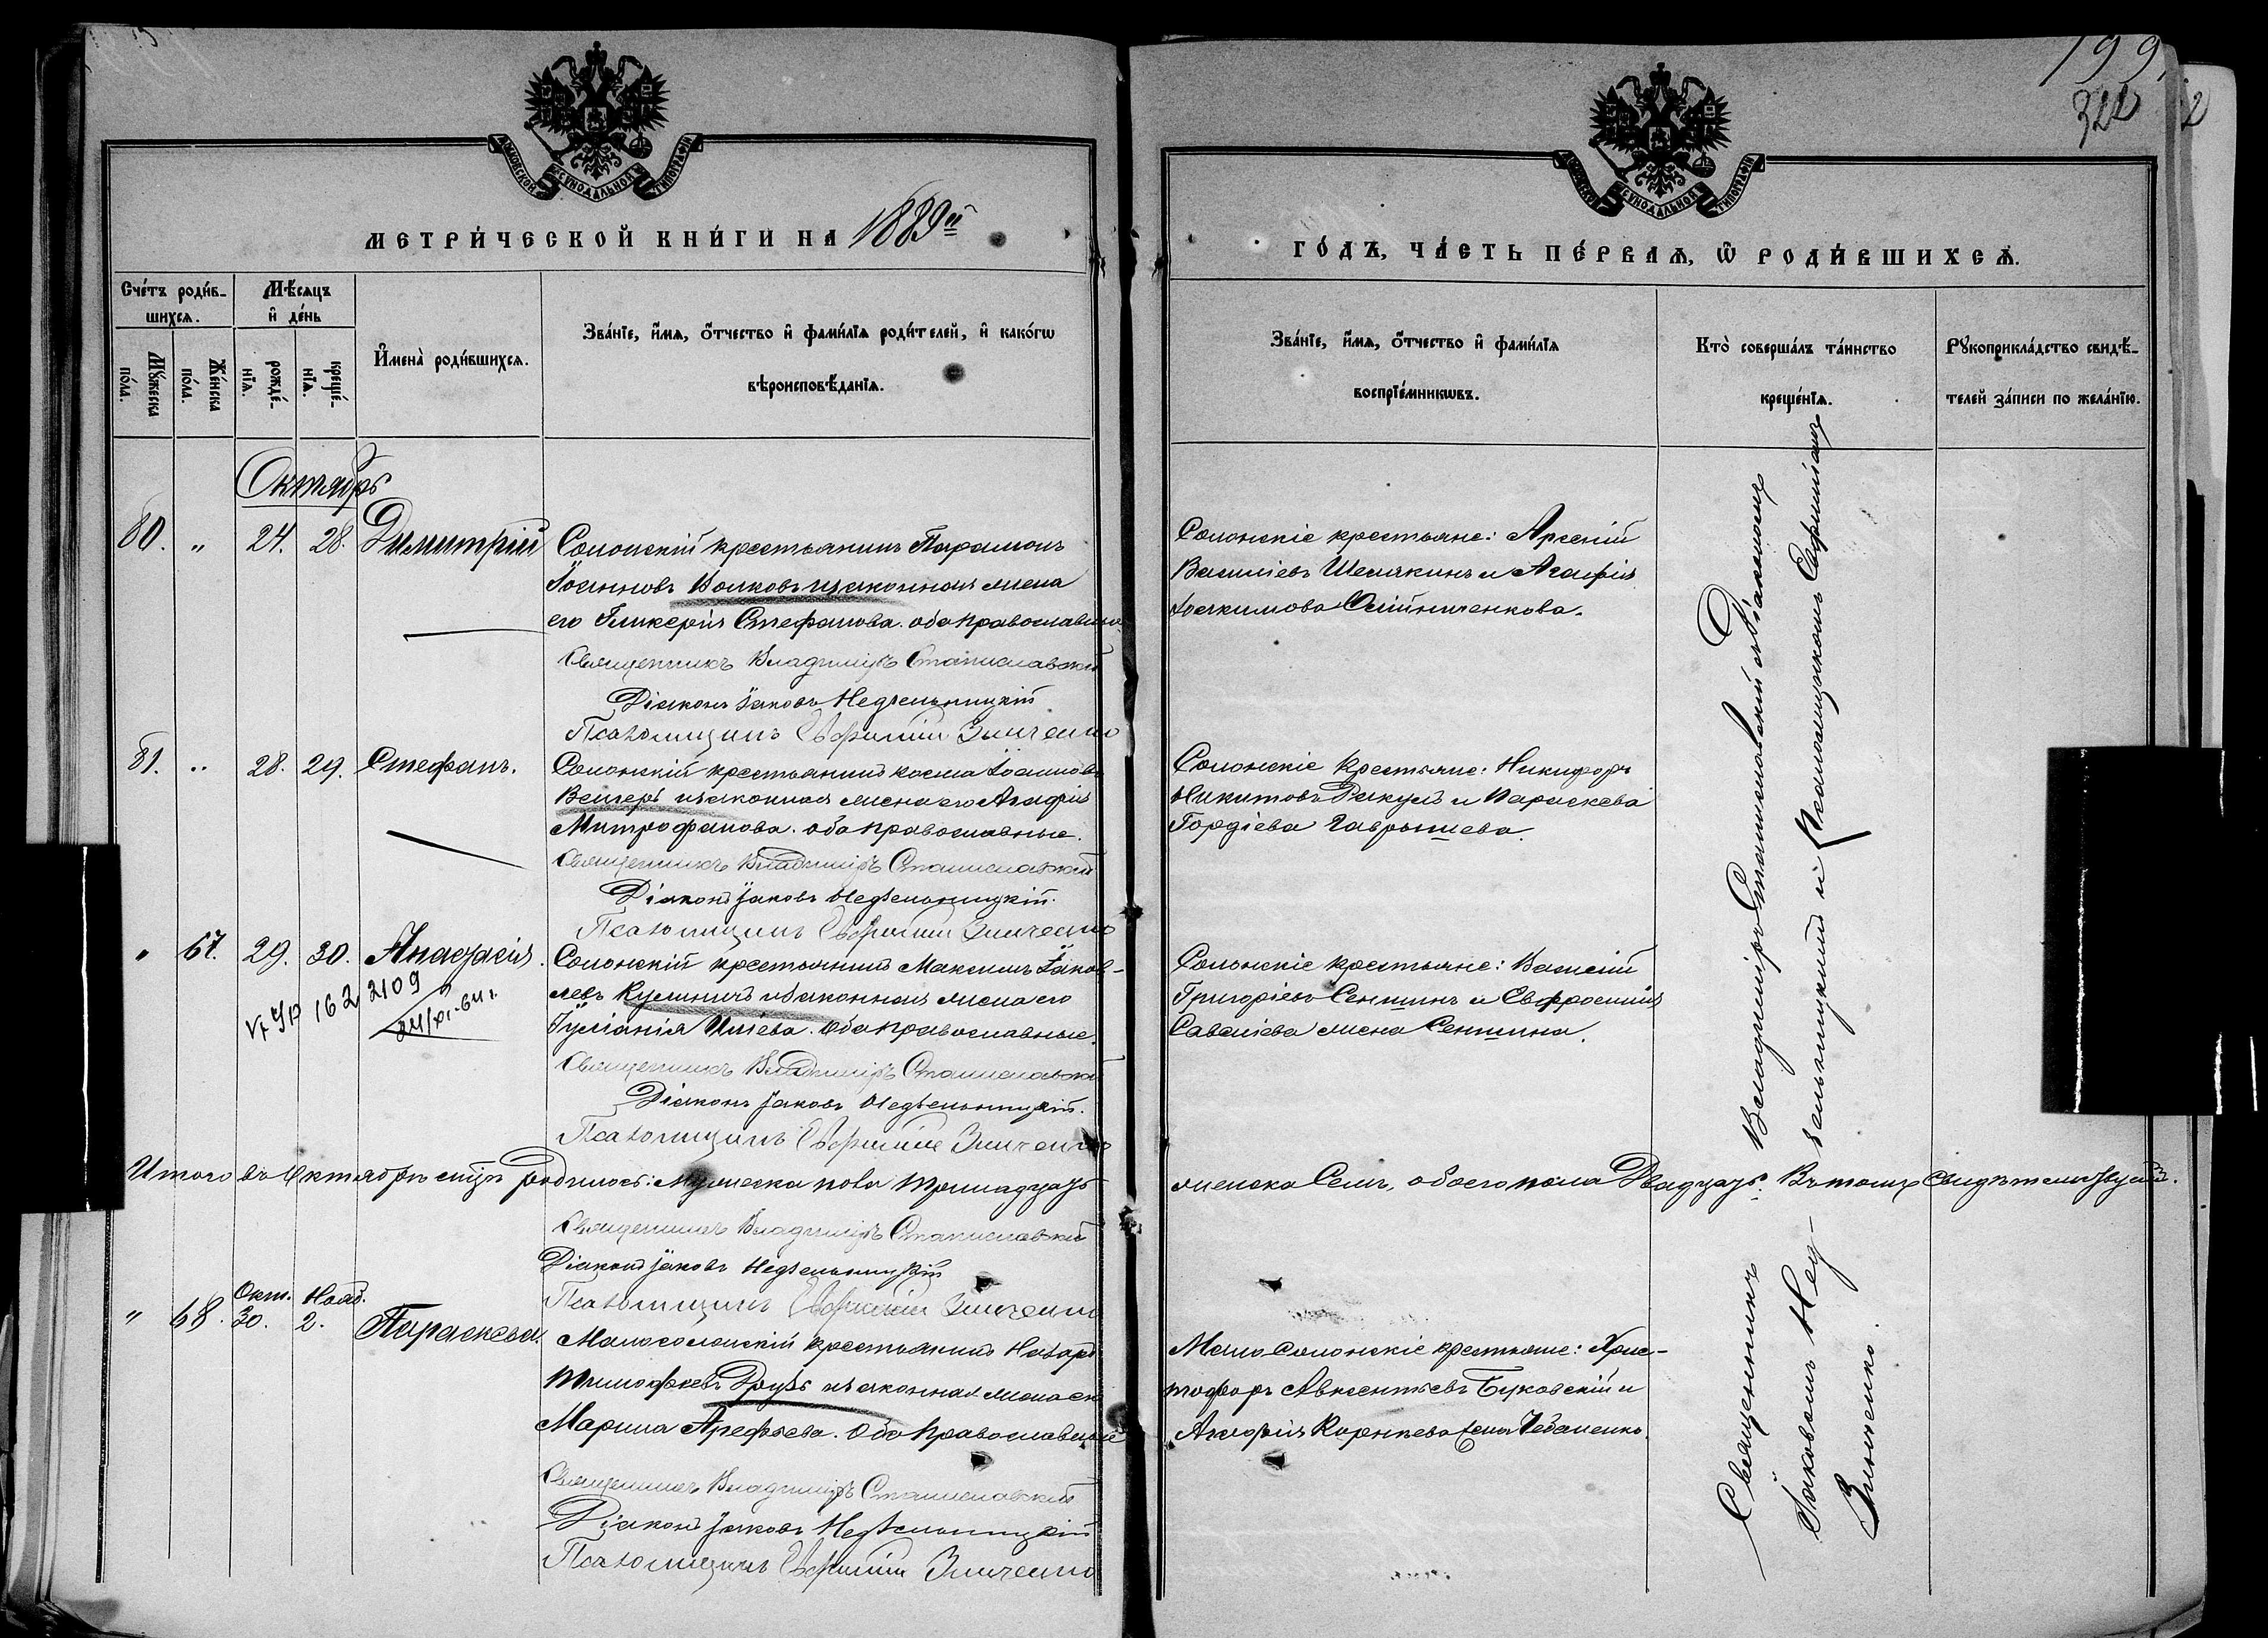 199
322
МЕТРИЧЕСКОЙ КНИГИ НА 1889й
ГОДЪ, ЧАСТЬ ПЕРВАЯ, Ѡ РОДИВШИХСЯ.
Счетъ родив-
шихся.
Мѣсяцъ
и день
Мужеска
пола.
Женска
пола.
рожде-
нія.
креще-
нія.
Имена родившихся.
Званіе, имя, отчество и фамилія родителей, и какогѡ
вѣроисповѣданія.
Званіе, имя, отчество и фамилія
воспріемникѡвъ.
Кто совершалъ таинство
крещенія.
Рукоприкладство свидѣ-
телей записи по желанію.
Октябрь
80. " 24. 28. Димитрій
Солонскій крестьянинъ Парамонъ
Іоанновъ Волковъ и законная жена
его Гликерія Стефанова. оба православные
Священникъ Владиміръ Станиславскій
Діаконъ Іаковъ Недзельницкій
Псаломщикъ Евфимій Зинченко
Солонскіе крестьяне: Арсеній
Василіевъ Шелякинъ и Агафія
Іоакимова Олійниченкова.
81. " 28. 29. Стефанъ.
Солонскій крестьянинъ Косма Іоанновъ
Венгеръ и законная жена его Агафія
Митрофанова. оба православные.
Священникъ Владиміръ Станиславскій
Діаконъ Іаковъ Недзельницкій.
Псаломщикъ Евфимій Зинченко
Солонскіе крестьяне: Никифоръ
Никитовъ Рекулъ и Параскева
Гордіева Гаврышева.
" 67. 29. 30. Анастасія.
162 2109
Солонскій крестьянинъ Максимъ Іаков-
левъ Кулиничъ и законная жена его
Іуліанія Иліева. Оба православные.
Священникъ Владиміръ Станиславскій
Діаконъ Іаковъ Недзельницкій.
Псаломщикъ Евфимій Зинченко
Солонскіе крестьяне: Василій
Григоріевъ Сеншинъ и Евфросинія
Савеліева жена Сеншина.
Итого въ Октябрѣ мцѣ родилось: Мужеска пола тринадцать
женска Семь, обоего пола Двадцать. Въ томъ свидѣтельствуемъ.
Священникъ Владиміръ Станиславскій
Діаконъ Іаковъ Недзельницкій
Псаломщикъ Евфимій Зинченко
Окт. Нояб.
" 68. 30. 2. Параскева.
Малосолонскій крестьянинъ Назаръ
Тимофеевъ Друзь и законная жена его
Марина Арефьева. Оба православные
Священникъ Владиміръ Станиславскій
Діаконъ Іаковъ Недзельницкій
Псаломщикъ Евфимій Зинченко
Мало Солонскіе крестьяне: Хрис-
тофоръ Авксентьевъ Буковскій и
Агафія Корнѣева жена Чебаненко.
Священникъ Владиміръ Станиславскій съ Діакономъ
Іаковомъ Нед-зельницкимъ и Псаломщикомъ Евфиміемъ
Зинченко.